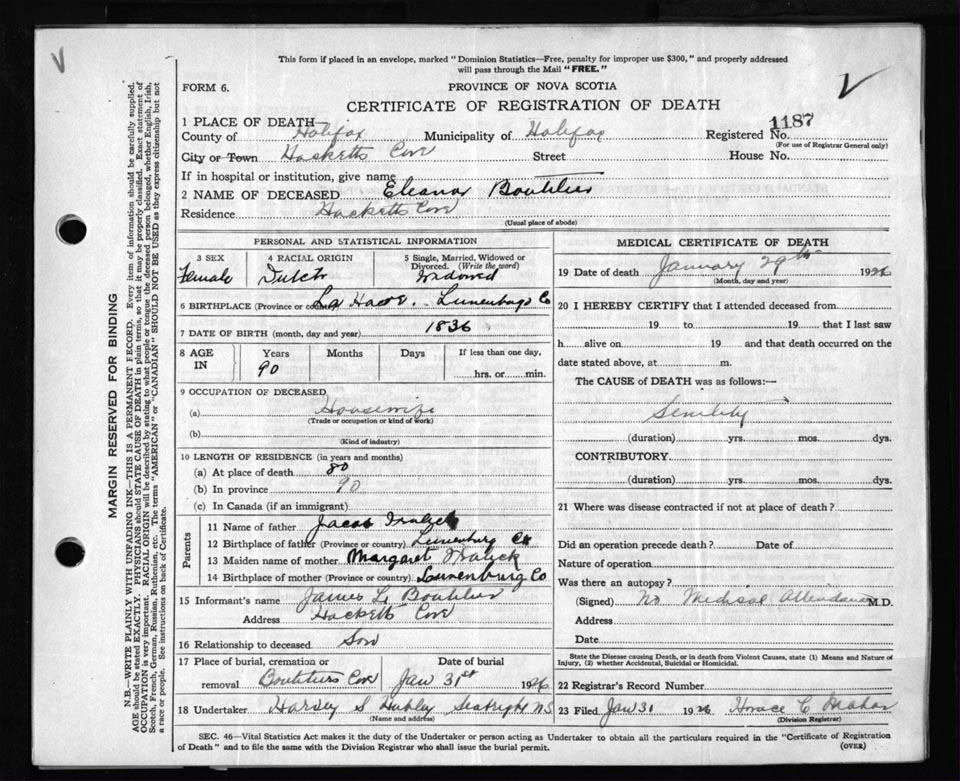 This form if placed in an envelope, marked "Dominion Statistics—Free, penalty for improper use $300," and properly addressed
will pass through the Mail "FREE."
FORM 6.
PROVINCE OF NOVA SCOTIA
CERTIFICATE OF REGISTRATION OF DEATH
1 PLACE OF DEATH
1187
County of Halifax Municipality of Halifax Registered No.
(For use of Registrar General only)
City or Town Hacketts Cove Street House No.
If in hospital or institution, give name
2 NAME OF DECEASED Eleanor Boutilier
Residence Hacketts Cove
(Usual place of abode)
PERSONAL AND STATISTICAL INFORMATION
3 SEX 4 RACIAL ORIGIN 5 Single, Married, Widowed or Divorced. (Write the word)
Female Dutch Widowed
6 BIRTHPLACE (Province or country) La Have. Lunenburg Co
7 DATE OF BIRTH (month, day and year) 1836
8 AGE IN Years Months Days If less than one day,
90 hrs. or min.
9 OCCUPATION OF DECEASED
(a) Housewife
(Trade or occupation or kind of work)
(b)
(Kind of industry)
10 LENGTH OF RESIDENCE (in years and months)
(a) At place of death 80
(b) In province 90
(c) In Canada (if an immigrant)
Parents
11 Name of father Jacob
12 Birthplace of father (Province or country) Lunenburg Co
13 Maiden name of mother Margaret
14 Birthplace of mother (Province or country) Lunenburg Co
15 Informant's name James L Boutilier
Address Hacketts Cove
16 Relationship to deceased Son
17 Place of burial, cremation or Date of burial
removal Boutiliers Cove Jan 31st 1926
18 Undertaker Harvey S Hubley Seabright N.S
(Name and address)
MEDICAL CERTIFICATE OF DEATH
19 Date of death January 29th 1926
(Month, day and year)
20 I HEREBY CERTIFY that I attended deceased from
19 to 19 that I last saw
h alive on 19 and that death occurred on the
date stated above, at m.
The CAUSE of DEATH was as follows:—
Senility
(duration) yrs. mos. dys.
CONTRIBUTORY.
(duration) yrs. mos. dys.
21 Where was disease contracted if not at place of death?
Did an operation precede death? Date of
Nature of operation
Was there an autopsy?
(Signed) No Medical Attendance M.D.
Address
Date
State the Disease causing Death, or in death from Violent Causes, state (1) Means and Nature of
Injury, (2) whether Accidental, Suicidal or Homicidal.
22 Registrar's Record Number
23 Filed Jan 31 1926 Horace C
(Division Registrar)
SEC. 46—Vital Statistics Act makes it the duty of the Undertaker or person acting as Undertaker to obtain all the particulars required in the "Certificate of Registration
of Death" and to file the same with the Division Registrar who shall issue the burial permit.
(OVER)
MARGIN RESERVED FOR BINDING
N.B.—WRITE PLAINLY WITH UNFADING INK—THIS IS A PERMANENT RECORD. Every item of information should be carefully supplied.
AGE should be stated EXACTLY. PHYSICIANS should STATE CAUSE OF DEATH in plain terms, so that it may be properly classified. Exact statement of
OCCUPATION is very important. RACIAL ORIGIN will be described by stating to what people or tongue the deceased person belonged, whether English, Irish,
Scotch, French, German, Russian, Ruthenian, etc. The terms "AMERICAN" or "CANADIAN" SHOULD NOT BE USED as they express citizenship but not
a race or people. See instructions on back of Certificate.